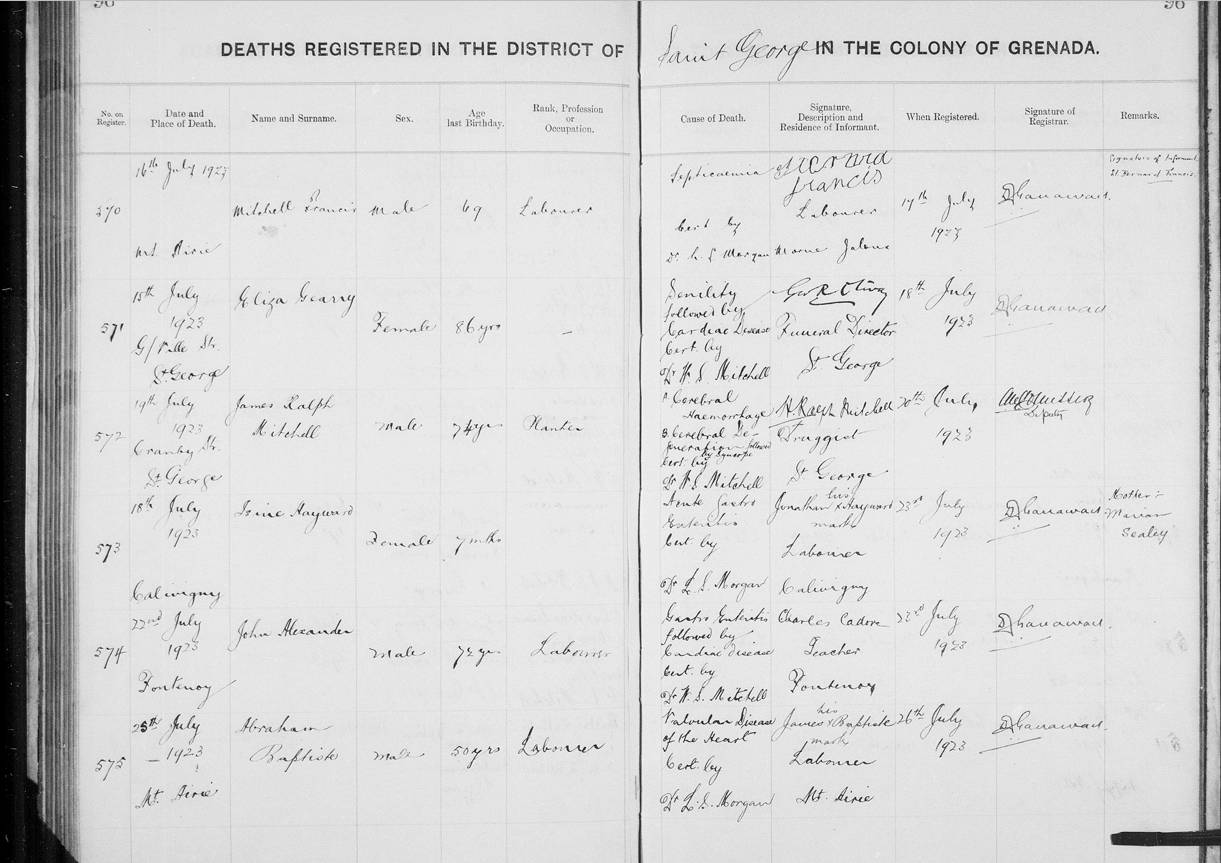 96
96
DEATHS REGISTERED IN THE DISTRICT OF Saint George IN THE COLONY OF GRENADA.
No. on Register.
Date and Place of Death.
Name and Surname.
Sex.
Age last Birthday.
Rank, Profession or Occupation.
Cause of Death.
Signature, Description and Residence of Informant.
When Registered.
Signature of Registrar.
Remarks.
570
16th July 1923
Mt. Airie
Mitchell Francis
Male
69
Labourer
Septicaemia
Cert by
Dr L S Morgan
St Bernard
Francis
Labourer
Morne Jaloux
17th July
1923
Signature of Informant
St. Bernard Francis
571
15th July
1923
G/Ville Str.
St. George
Eliza Gearry
Female
86 yrs
–
Senility
followed by
Cardiac Disease
Cert. by
Dr W. S. Mitchell
Funeral Director
St George
18th July
1923
572
19th July
1923
Granby Str.
St. George
James Ralph
Mitchell
Male
74 yrs
Planter
Cerebral
Haemorrhage
Cerebral De-
generation followed
by Syncope
Cert. by
Dr W. S. Mitchell
H. Ralph Mitchell
Druggist
St. George
20th July,
1923
Deputy
573
18th July
1923
Calivigny
Hayward
Female
7 mths
Acute Gastro
Enteritis
Cert. by
Dr L. S. Morgan
Jonathan his x Hayward
mark
Labourer
Calivigny
23rd July
1923
Mother:-
Marian
Sealey
574
22nd July
1923
Fontenoy
John Alexander
Male
72 yrs
Labourer
Gastro Enteritis
followed by
Cardiac disease
Cert. by
Dr W. S. Mitchell
Charles Cadore
Teacher
Fontenoy
23rd July
1923
575
25th July
– 1923
Mt. Airie
Abraham
Baptiste
Male
50 yrs
Labourer
Valvular Disease
of the Heart
Cert. by
Dr L. S. Morgan
James his x Baptiste
mark
Labourer
Mt. Airie
26th July
1923